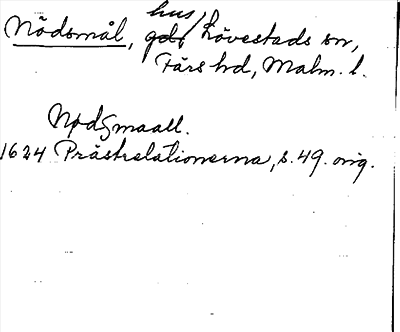 Nödsmål, hus, Lövestads sn,
Färs hd, Malm. l.
Nødsmaall.
1624 Prästrelationerna, s. 49. orig.